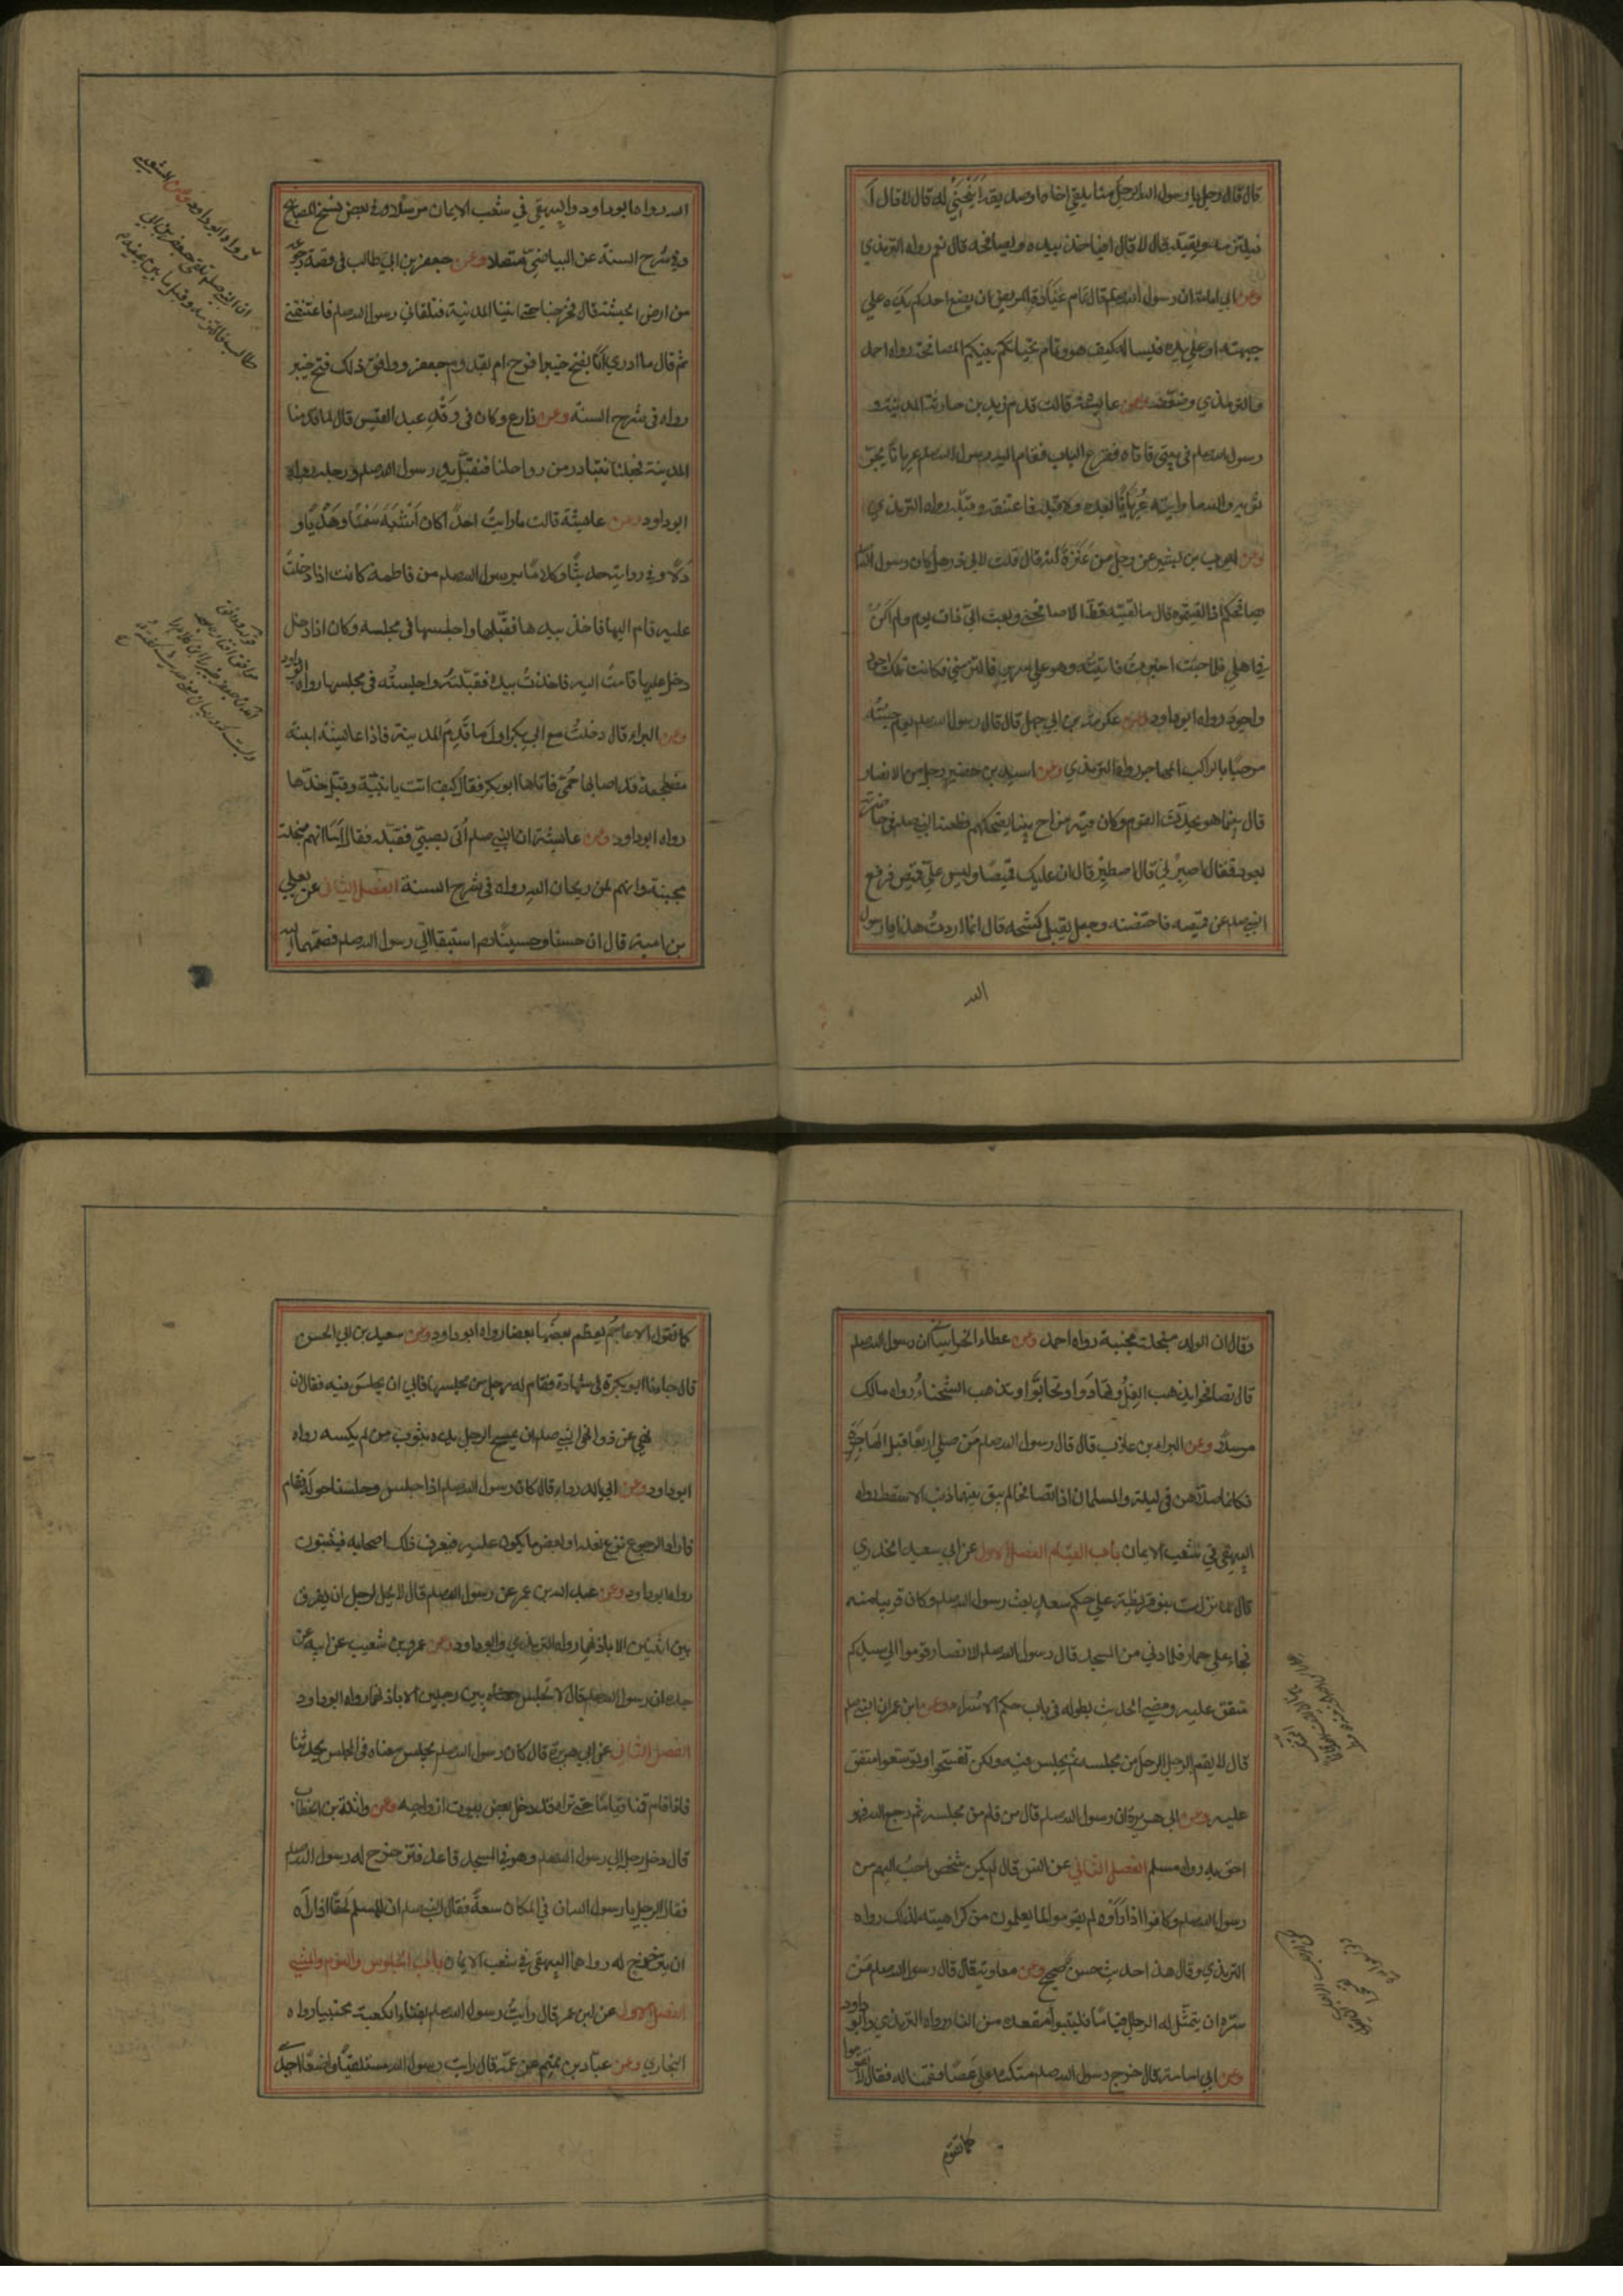 قال قال رجل يا رسول الله الرجل منا يلقي اخاه او صديقه اَيَنْحَنِي له قال لا قال اَ
فيلتزمه ويقبّله قال لا قال افياخذ بيده ويصافحه قال نعم رواه الترمذي
وعن ابي امامة ان رسول الله صلم قال تمام عيادة المريض ان يضع احدكم يده علي
جبهته او علي يده فيساله كيف هو وتمام تحياتكم بينكم المصافحة رواه احمد
والترمذي وضعّفه وعن عائشة قالت قدم زيد بن حارثة المدينة و
رسول الله صلم في بيتي فاتاه فقرع الباب فقام اليه رسول الله صلم عريانا يجرّ
ثوبه والله ما رايته عُريانًا قبله ولا بعده فاعتنقه وقبّله رواه الترمذي
وعن ايوب بن بشير عن رجل من عَنَزةَ انه قال قلت لابي ذر هل كان رسول الله
يصافحكم اذا لقيتموه قال ما لقيته قطّ الا صافحني وبعث اليّ ذات يوم ولم اكنْ
في اهلي فلما جئت اُخبرتُ فاتيتُه وهو علي سرير فالتزمني فكانت تلك اجود
واجود رواه ابو داود وعن عكرمة بن ابي جهل قال قال رسول الله صلم يوم جئتُه
مرحبًا بالراكب المهاجر رواه الترمذي وعن اسيد بن حضير رجل من الانصار
قال بينما هو يحدّث القوم وكان فيه مزاح بينا يضحكهم فطعنه النبي صلم في خاصرته
بعود فقال اصبرْني قال اصطبِرْ قال ان عليك قميصًا وليس عليّ قميص فرفع
النبي صلم عن قميصه فاحتضنه وجعل يقبل كشحه قال انما اردتُ هذا يا رسول
الله
الله رواه ابو داود والبيهقي في شعب الايمان مرسلا وفي بعض نسخ المصابيح
وفي شرح السنة عن البياضيّ متصلا وعن جعفر بن ابي طالب في قصة رجوعه
من ارض الحبشة قال فخرجنا حتي اتينا المدينة فتلقاني رسول الله صلم فاعتنقني
ثم قال ما ادري اَنَا بفتح خيبر افرح ام بقدوم جعفر ووافق ذلك فتح خيبر
رواه في شرح السنة وعن زارع وكان في وَفْدِ عبد القيس قال لما قدمنا
المدينة فجعلنا نتبادر من رواحلنا فنقبّل يد رسول الله صلم ورجله رواه
ابو داود وعن عائشة قالت ما رايتُ احدًا كان اَشْبَهَ سَمْتًا وهَدْيًا و
دَلًّا وفي رواية حديثًا وكلامًا برسول الله صلم من فاطمة كانت اذا دخلتْ
عليه قام اليها فاخذ بيدها فقبّلها واجلسها في مجلسه وكان اذا دخل
دخل عليها قامتْ اليه فاخذتْ بيده فقبّلتْه واجلستْه في مجلسها رواه ابو داود
وعن البراء قال دخلتُ مع ابي بكر اولَ ما قَدِمَ المدينة فاذا عائشة ابنته
مضطجعة قد اصابها حُمّي فاتاها ابو بكر فقال كيف انت يا بنيّة وقبّل خدّها
رواه ابو داود وعن عائشة ان النبي صلم اُتي بصبيّ فقبّله فقال اَمَا انهم مبخلة
مجبنة وانهم لمن ريحان الله رواه في شرح السنة الفصل الثالث عن يعلي
بن امية قال ان حسنا وحسينًا استبقا الي رسول الله صلم فضمّهما اليه
رواه ابو داود وعن الشعبي
ان النبي صلم تلقى جعفر بن ابي
طالب فالتزمه وقبل ما بين عينيه
وقال ان الولد مبخلة مجبنة رواه احمد وعن عطاء الخراساني ان رسول الله صلم
قال تصافحوا يذهب الغِلُّ وتهادَوا وتحابّوا وتذهب الشحناءُ رواه مالك
مرسلا وعن البراء بن عازب قال قال رسول الله صلم مَن صلي اربعًا قبل الهاجرةِ
فكانما صلّاهن في ليلة القدر والمسلمان اذا تصافحا لم يبق بينهما ذنب الا سقط رواه
البيهقي في شعب الايمان باب القيام الفصل الاول عن ابي سعيد الخدري
قال لما نزلت بنو قريظة علي حكم سعدٍ بعث رسول الله صلم وكان قريبا منه
فجاء علي حمار فلما دني من المسجد قال رسول الله صلم للانصار قوموا الي سيدكم
متفق عليه ومضي الحديث بطوله في باب حكم الاسراء وعن ابن عمر ان النبي صلم
قال لا يقيم الرجل الرجل من مجلسه ثم يجلس فيه ولكن تفسّحوا وتوسّعوا متفق
عليه وعن ابي هريرة ان رسول الله صلم قال من قام من مجلسه ثم رجع اليه فهو
احق به رواه مسلم الفصل الثاني عن انس قال لم يكن شخص احبّ اليهم من
رسول الله صلم وكانوا اذا راَوْه لم يقوموا لما يعلمون من كراهيته لذلك رواه
الترمذي وقال هذا حديث حسن صحيح وعن معاوية قال قال رسول الله صلم مَنْ
سرّه ان يتمثّل له الرجال قيامًا فليتبوأ مقعده من النار رواه الترمذي وابو داود
وعن ابي امامة قال خرج رسول الله صلم متكئًا علي عَصًا فقمنا له فقال لا تقوموا
كما تقوم
كما تقوم الاعاجم يعظّم بعضُها بعضا رواه ابو داود وعن سعيد بن ابي الحسن
قال جاءنا ابو بكرة في شهادة فقام له رجل من مجلسه فابي ان يجلس فيه فقال ان
نهي عن ذا ونهي النبي صلم ان يمسح الرجل يده بثوب من لم يكسه رواه
ابو داود وعن ابي الدرداء قال كان رسول الله صلم اذا جلس وجلسنا حوله فقام
فاراد الرجوع نزع نعله او بعض ما يكون عليه فيعرف ذلك اصحابه فيثبتون
رواه ابو داود وعن عبد الله بن عمر عن رسول الله صلم قال لا يحل لرجل ان يفرق
بين اثنين الا باذنهما رواه الترمذي وابو داود وعن عمرو بن شعيب عن ابيه عن
جده ان رسول الله صلم قال لا تجلس بين رجلين الا باذنهما رواه ابو داود
الفصل الثالث عن ابي هريرة قال كان رسول الله صلم يجلس معنا في المجلس يحدثنا
فاذا قام قمنا قيامًا حتي نراه قد دخل بعض بيوت ازواجه وعن واثلة بن الخطاب
قال دخل رجل الي رسول الله صلم وهو في المسجد قاعد فتزحزح له رسول الله صلم
فقال الرجل يا رسول الله ان في المكان سعةً فقال النبي صلم ان للمسلم لحقًّا اذا رآه
ان يتزحزح له رواهما البيهقي في شعب الايمان باب الجلوس والنوم والمشي
الفصل الاول عن ابن عمر قال رأيتُ رسول الله صلم بفناء الكعبة محتبيا رواه
البخاري وعن عبّاد بن تميم عن عمّه قال رايت رسول الله مستلقيًا واضعًا احدي